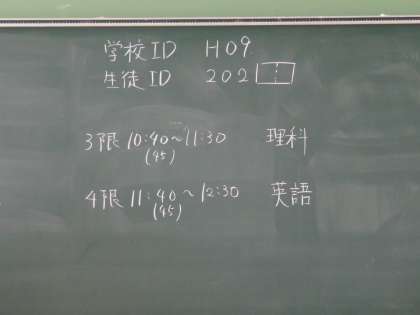 学校ID H09
生徒ID 202
3限 10:40~11:30 理科
(45)
4限 11:40~12:30 英語
(45)